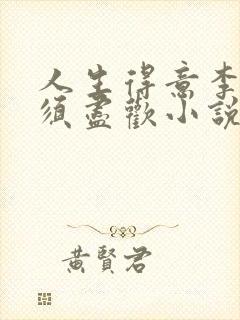 人生得意李
須盡歡小說
黃賢君